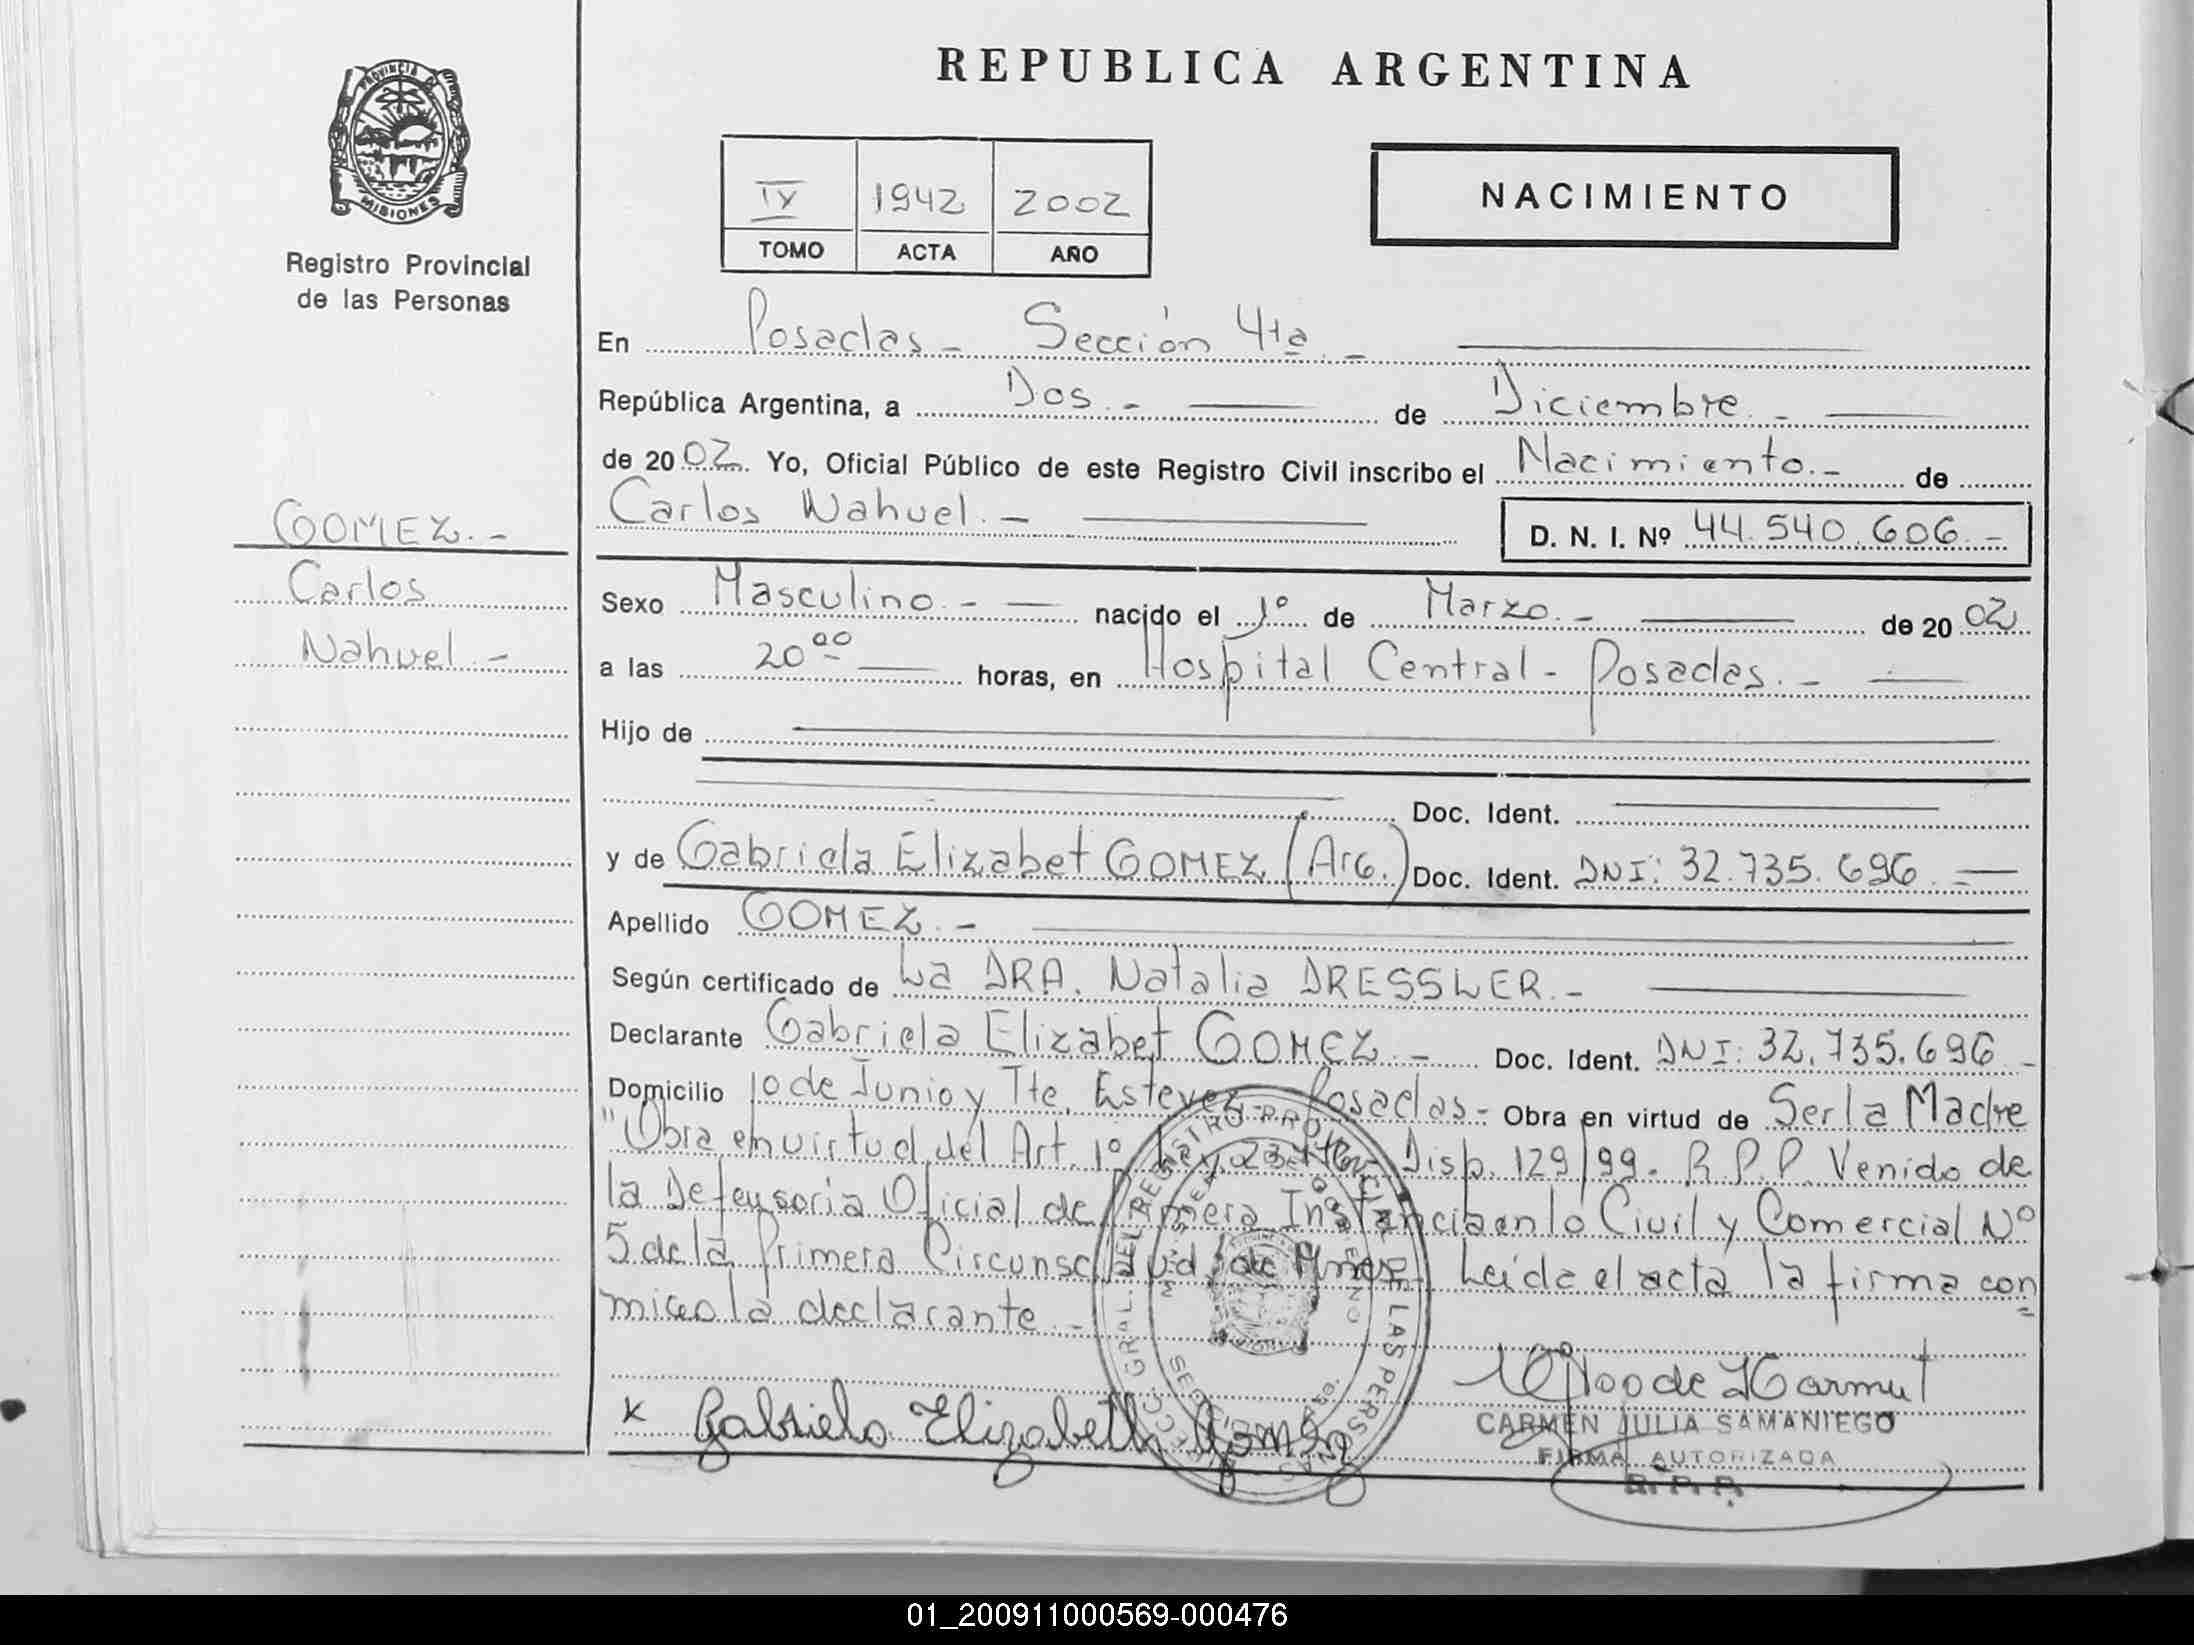 REPUBLICA ARGENTINA
PROVINCIA DE
MISIONES
Registro Provincial
de las Personas
IX 1942 2002
TOMO ACTA AÑO
NACIMIENTO
En Posadas - Sección 4ta. -
República Argentina, a Dos. - de Diciembre. -
de 2002. Yo, Oficial Público de este Registro Civil inscribo el Nacimiento. - de
GOMEZ. -
Carlos Nahuel. - D. N. I. Nº 44.540.606. -
Carlos
Sexo Masculino. - nacido el 1º de Marzo. - de 2002
Nahuel. -
a las 20 00 horas, en Hospital Central - Posadas. -
Hijo de
Doc. Ident.
y de Gabriela Elizabet GOMEZ (Arg.) Doc. Ident. DNI: 32.735.696. -
Apellido GOMEZ. -
Según certificado de La DRA. Natalia DRESSLER. -
Declarante Gabriela Elizabet GOMEZ. - Doc. Ident. DNI: 32.735.696 -
Domicilio 10 de Junio y Tte. Estevez - Posadas - Obra en virtud de Ser la Madre
"Obra en virtud del Art. 1º Ley Disp. 129/99 - R.P.P. Venido de
la Defensoria Oficial de Primera Instancia en lo Civil y Comercial Nº
5 de la Primera Leída el acta la firma con
migo la declarante. -
x Gabriela Elizabeth Gomez
CARMEN JULIA SAMANIEGO
FIRMA AUTORIZADA
R. P. P.
01_200911000569-000476